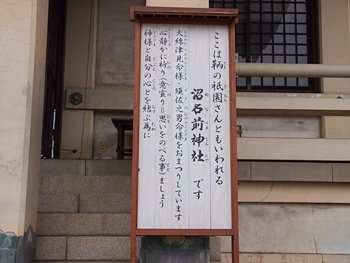 ここは鞆の祇園さんともいわれる
沼名前神社 です
大綿津見命様・須佐之男命様をおまつりしています
心静かに祈り(意宣り＝思いをのべる事)ましょう
神様と自分の心とを結ぶ為に